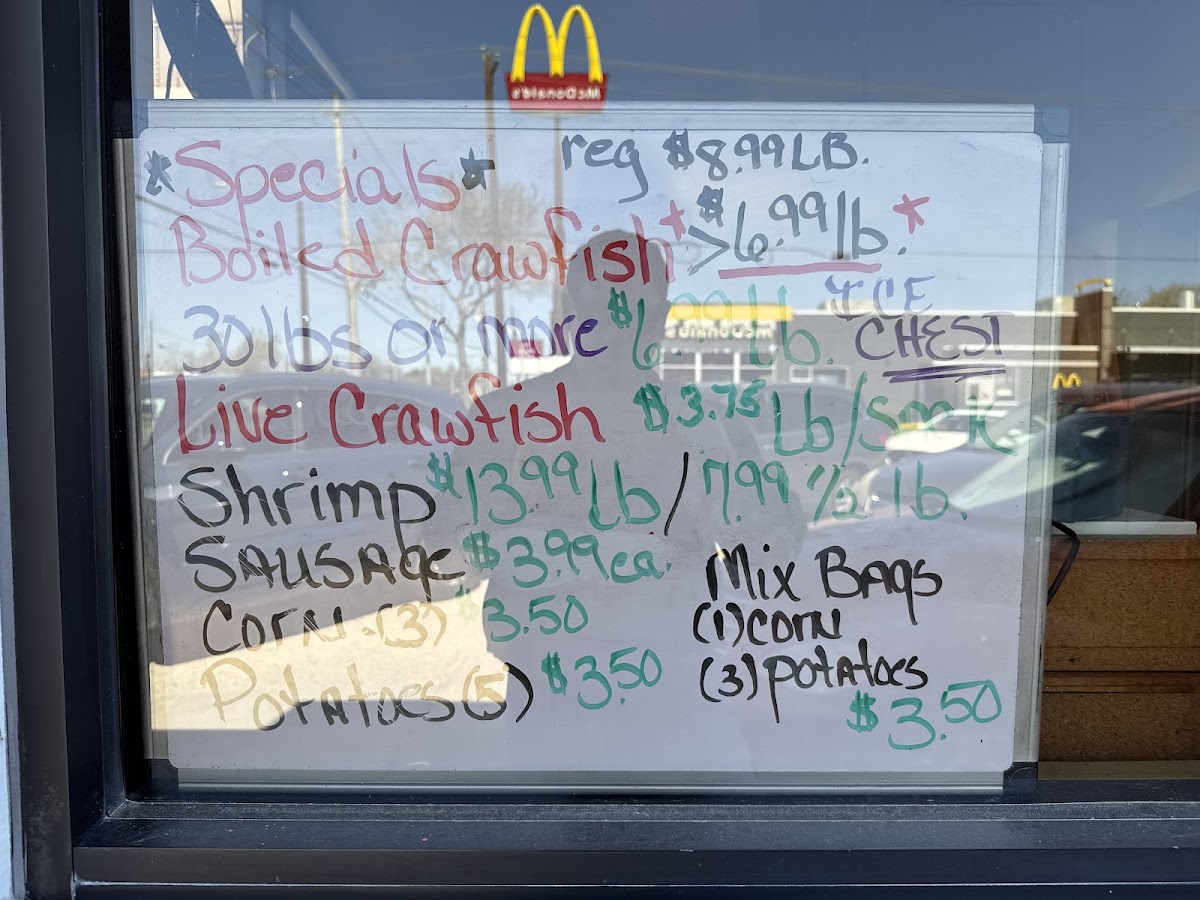 McDonald's
*Specials* reg $8.99 LB.
Boiled Crawfish* >$6.99 lb.*
30 lbs or more $6.99 lb. ICE CHEST
Live Crawfish $3.75 Lb/Sack
Shrimp $13.99 lb/7.99 1/2 lb.
SAUSAge $3.99 ea.
CorN (3) $3.50
PotAtoes (5) $3.50
Mix BAgs
(1) corN
(3) potAtoes
$3.50
McDonald's